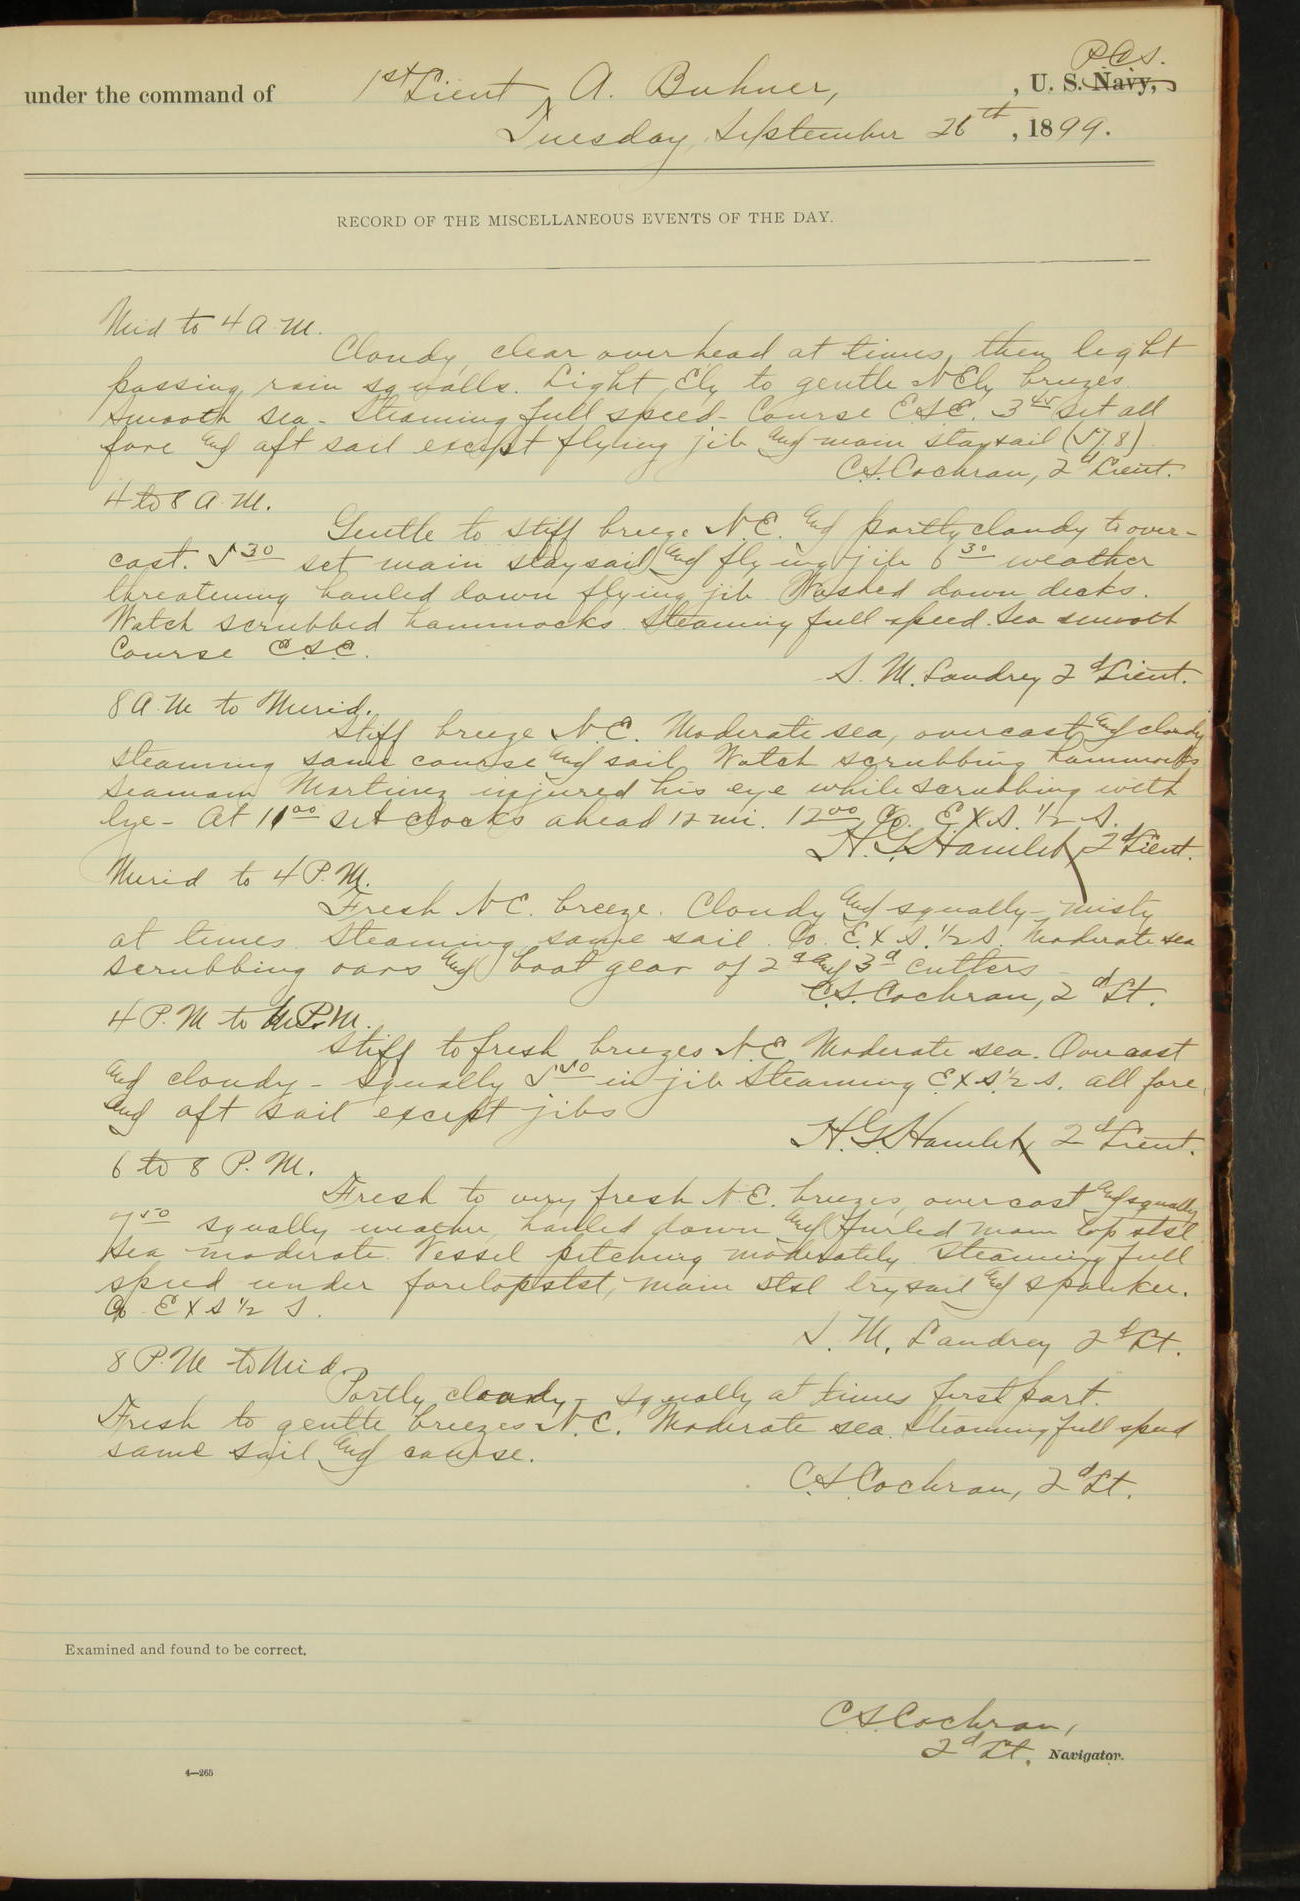 R.C.S.
under the command of 1st Lieut A. Buhner, , U. S. Navy,
Tuesday, September 26th, 1899.
RECORD OF THE MISCELLANEOUS EVENTS OF THE DAY.
Mid to 4 A.M.
Cloudy, clear overhead at times, then light
passing rain squalls. Light Ely to gentle NEly breezes.
Smooth sea - Steaming full speed - Course ESE. 3 45 set all
fore and aft sail except flying jib and main staysail
C.S. Cochran, 2d Lieut.
4 to 8 A.M.
Gentle to stiff breeze N.E. and partly cloudy to over-
cast. 5 30 set main staysail and flying jib 6 30 weather
threatening hauled down flying jib. Washed down decks.
Watch scrubbed hammocks. Steaming full speed. Sea smooth
Course ESE.
S. M. Landrey 2d Lieut.
8 A.M to Merid.
Stiff breeze N.E. Moderate sea, overcast and cloudy
steaming same course and sail. Watch scrubbing hammocks
Seaman Martinez injured his eye while scrubbing with
lye - At 11 00 set clocks ahead 12 mi. 12 00 Co. E X S. 1/2 S.
H. G. Hamlet, 2d Lieut.
Merid to 4 P.M.
Fresh NE. breeze. Cloudy and squally - misty
at times. Steaming same sail. Co. E. X S. 1/2 S. Moderate sea
Scrubbing oars and boat gear of 2d and 3d cutters -
C.S. Cochran, 2d Lt.
4 P.M to 6 P.M.
Stiff to fresh breezes N.E. Moderate sea. Overcast
and cloudy - Squally 5 50 in jib Steaming E X S 1/2 S. all fore
and aft sail except jibs
H. G. Hamlet, 2d Lieut.
6 to 8 P.M.
Fresh to very fresh N.E. breezes, overcast and squally
7 50 squally weather, hauled down and furled main topstsl
Sea moderate. Vessel pitching moderately. Steaming full
speed under foretopstsl, main stsl trysail and spanker.
Co E X S 1/2 S.
S. M. Landrey 2d Lt.
8 P.M to Mid.
Partly cloudy - squally at times first part.
Fresh to gentle breezes N.E. Moderate sea. Steaming full speed
same sail and course.
C.S. Cochran, 2d Lt.
Examined and found to be correct.
C.S. Cochran,
2d Lt. Navigator.
4—265